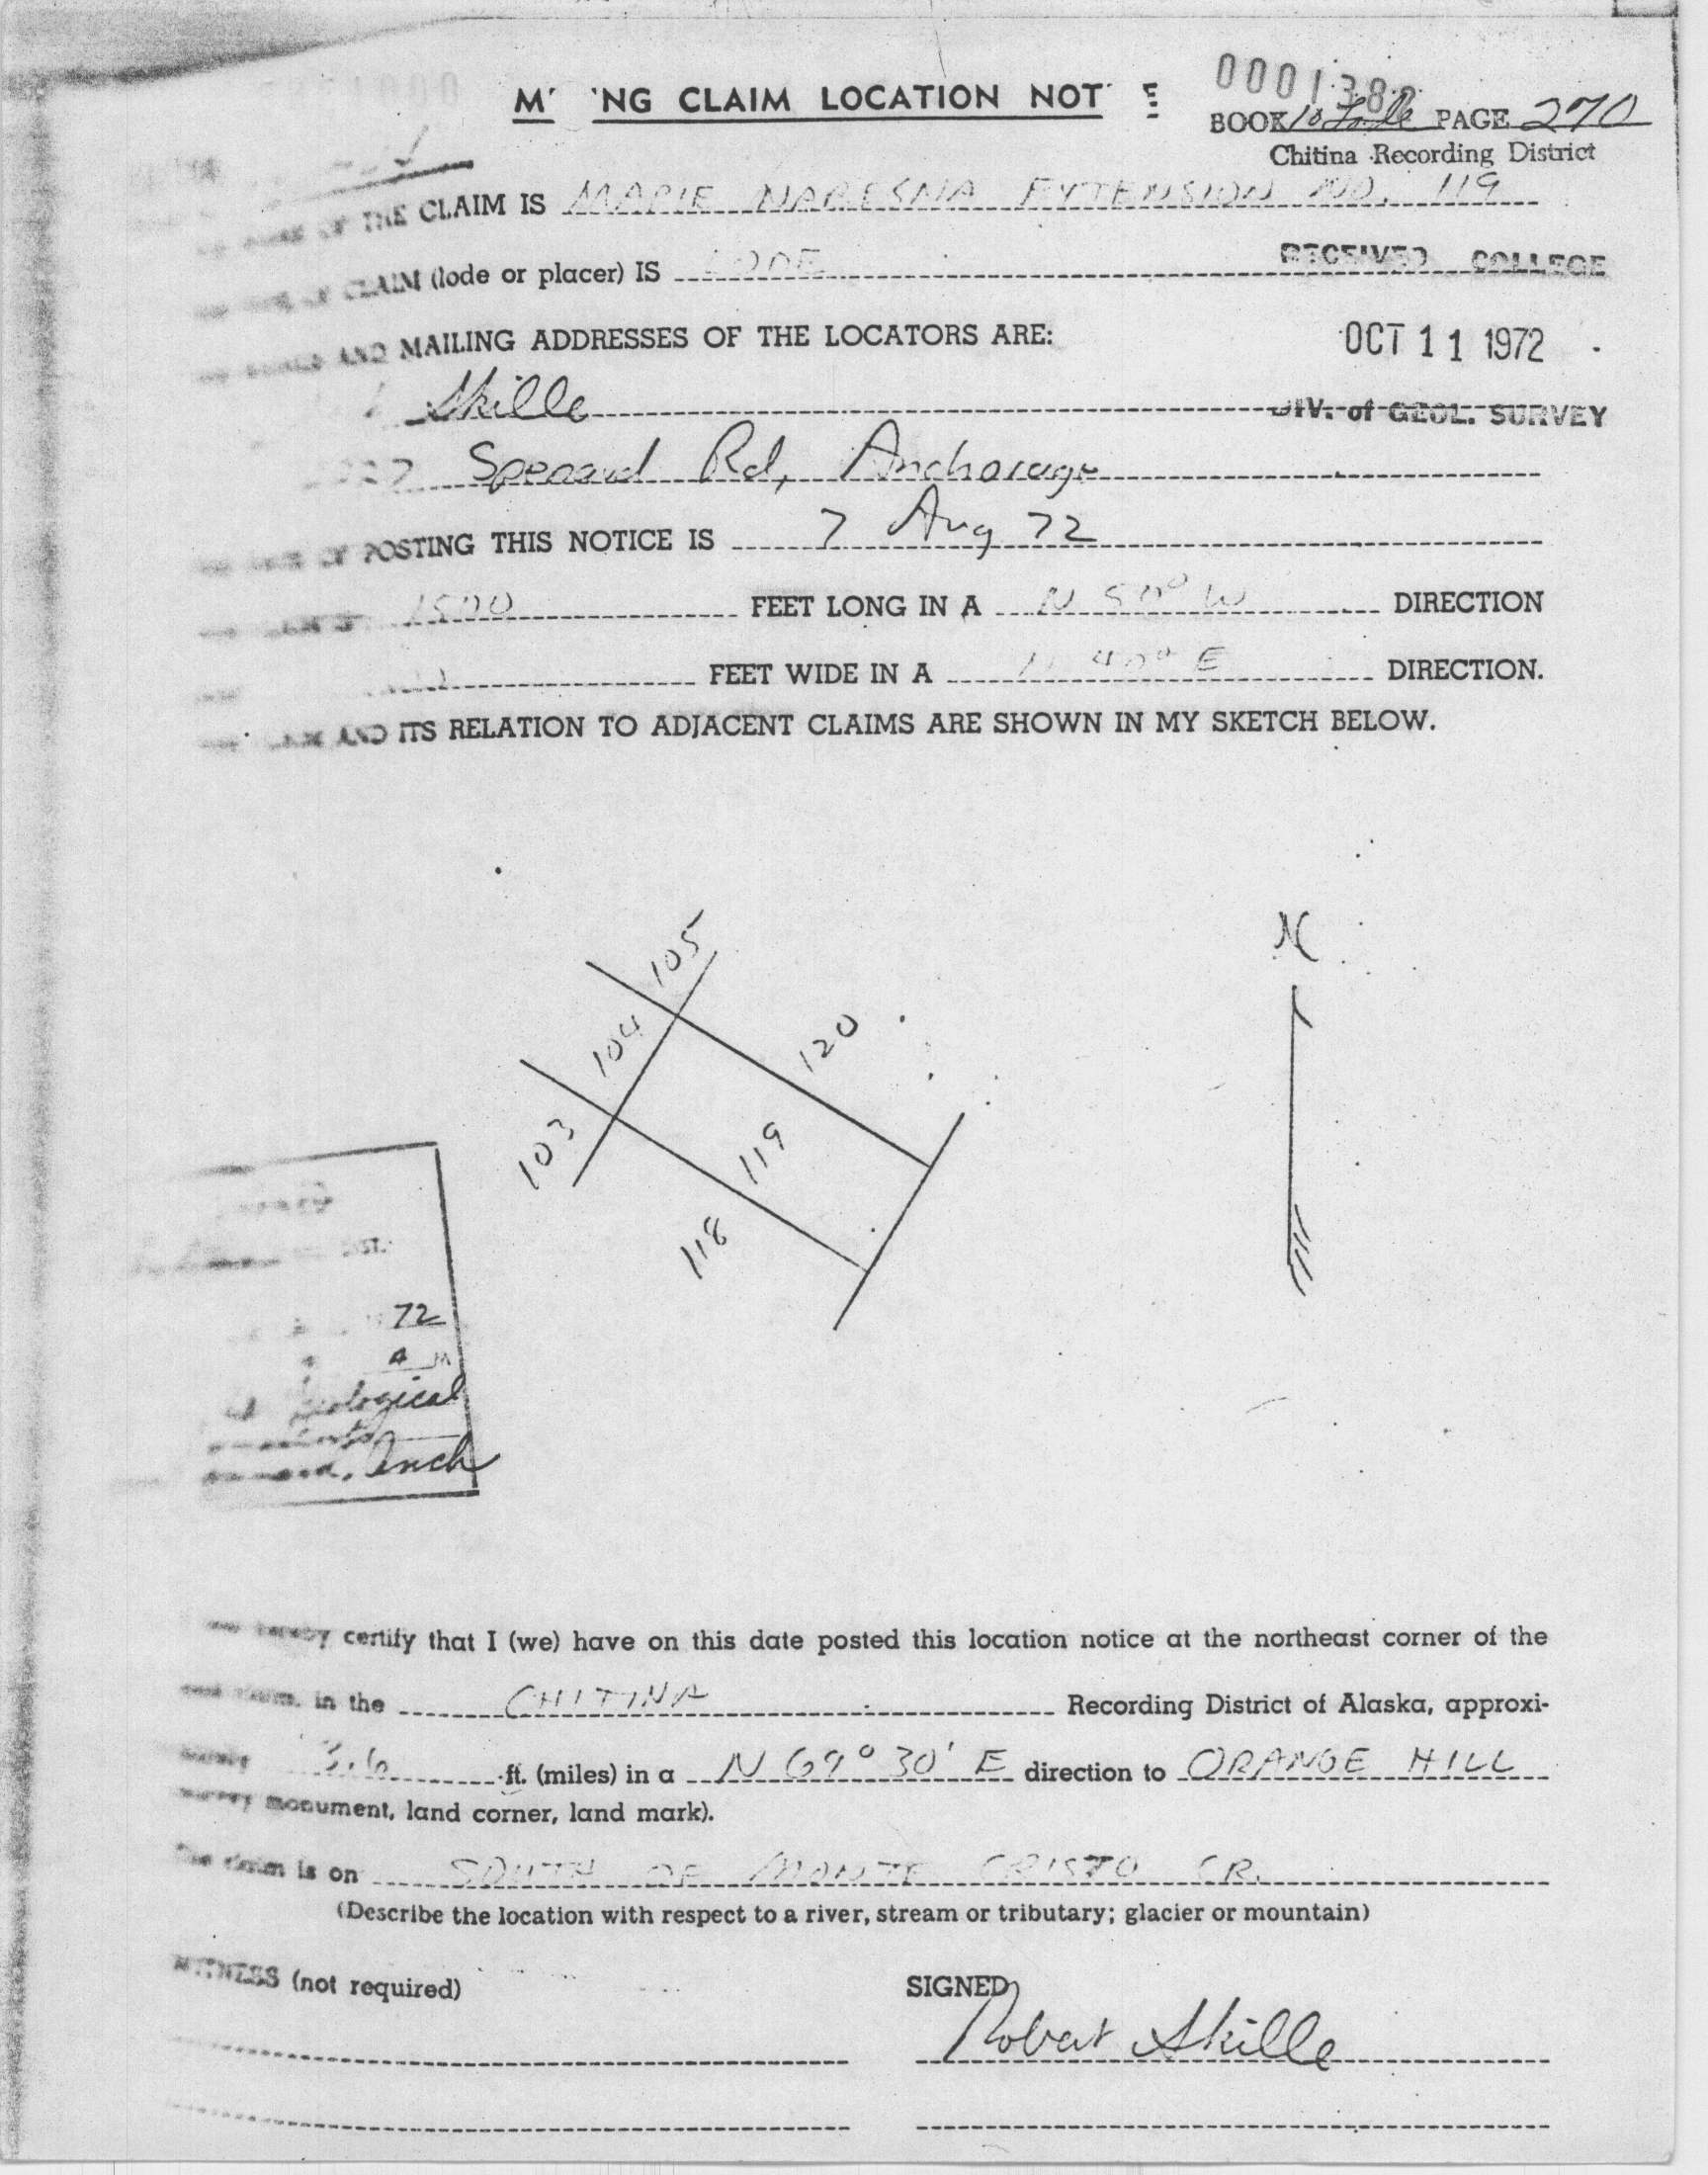 MINING CLAIM LOCATION NOTICE
BOOK 10 Lode PAGE 270
Chitina Recording District
OF THE CLAIM IS MARIE NABESNA EXTENSION NO. 119
OF CLAIM (lode or placer) IS LODE
RECEIVED COLLEGE
AND MAILING ADDRESSES OF THE LOCATORS ARE:
OCT 11 1972
Skille
DIV. of GEOL. SURVEY
Spenard Rd, Anchorage
OF POSTING THIS NOTICE IS 7 Aug 72
1500 FEET LONG IN A N 50° W DIRECTION
FEET WIDE IN A N 40° E DIRECTION.
AND ITS RELATION TO ADJACENT CLAIMS ARE SHOWN IN MY SKETCH BELOW.
N
105
104
120
103
119
118
DIST.
72
A M
Geological
Anch
hereby certify that I (we) have on this date posted this location notice at the northeast corner of the
claim, in the CHITINA Recording District of Alaska, approxi-
3.6 ft. (miles) in a N 69° 30' E direction to ORANGE HILL
survey monument, land corner, land mark).
The claim is on SOUTH OF MONTE CRISTO CR.
(Describe the location with respect to a river, stream or tributary; glacier or mountain)
WITNESS (not required)
SIGNED
Robert Skille